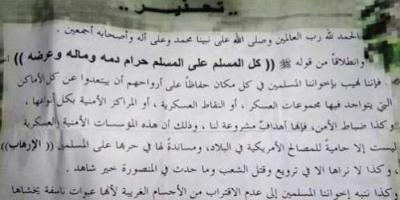 .. تحذير ..
الحمد لله رب العالمين وصلى الله على نبينا محمد وعلى آله وأصحابه أجمعين .
وانطلاقاً من قوله ﷺ (( كل المسلم على المسلم حرام دمه وماله وعرضه ))
فإننا نهيب بإخواننا المسلمين في كل مكان حفاظاً على أرواحهم أن يبتعدوا عن كل الأماكن
التي يتواجد فيها مجموعات العسكر , أو النقاط العسكرية , أو المراكز الأمنية بكل أنواعها ,
وكذا ضباط الأمن، فإنها أهدافٌ مشروعة لنا , وذلك أن هذه المؤسسات الأمنية والعسكرية
ليست إلا حامية للمصالح الأمريكية في البلاد، ومساندة لها في حربها على المسلمين (( الإرهاب ))
, وكذا لا نراها الا في ترويع وقتل الشعب وما حدث في المنصورة خير شاهد .
وكذا ننبه إخواننا المسلمين إلى عدم الاقتراب من الأجسام الغريبة لأنها عبوات ناسفة يخشاها